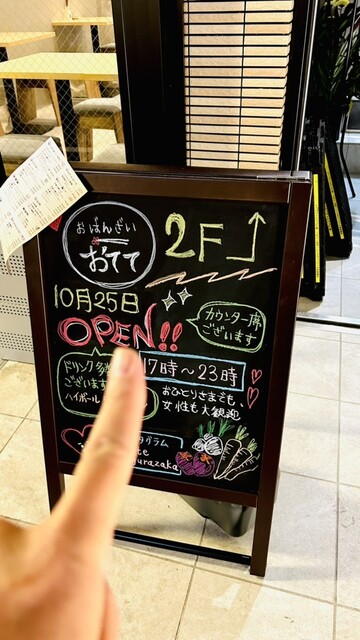 おばんざい
おてて
2F
10月25日
OPEN!!
カウンター席
ございます
ドリンク
ございます
ハイボール
17時〜23時
おひとりさまも
女性も大歓迎
グラム
te
urazaka